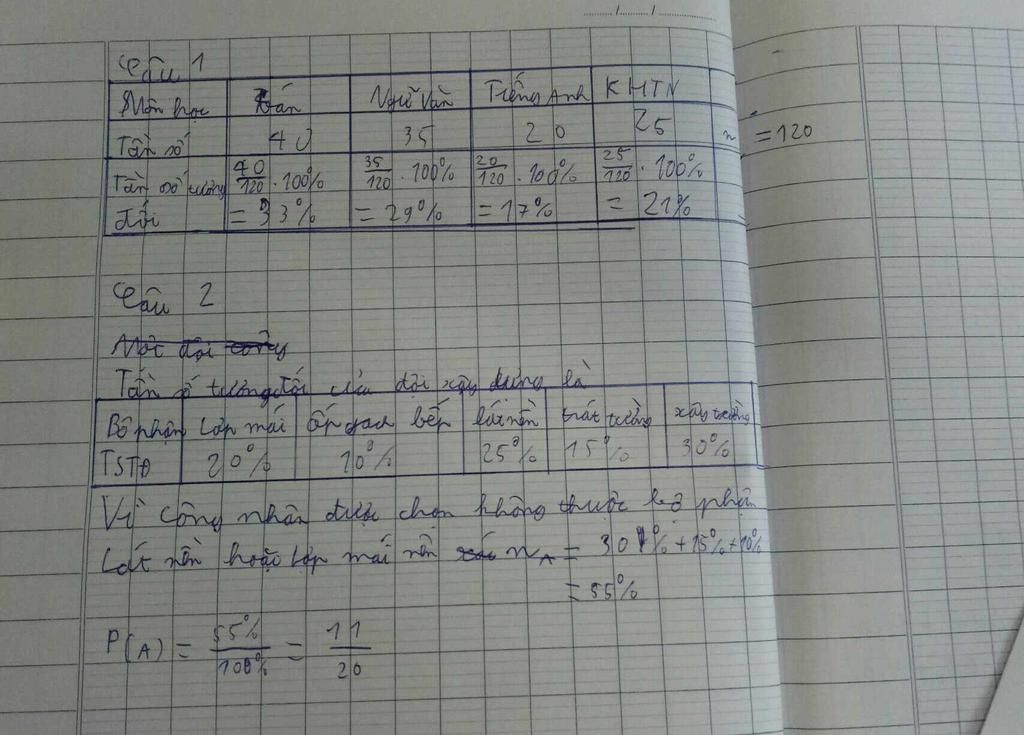 Câu 1
Môn học Toán Ngữ Văn Tiếng Anh KHTN
Tần số 40 35 20 25 n = 120
Tần số tương 40/120 · 100% 35/120 · 100% 20/120 · 100% 25/120 · 100%
đối = 33% = 29% = 17% = 21%
Câu 2
Một đội công
Tần số tương đối của đội xây dựng là
Bộ phận Lợp mái ốp gạch bếp lát nền trát tường xây tường
TSTĐ 20% 10% 25% 15% 30%
Vì công nhân được chọn không thuộc bộ phận
Lát nền hoặc Lợp mái nên n_A = 30% + 15% + 10%
= 55%
P(A) = 55%/100% = 11/20